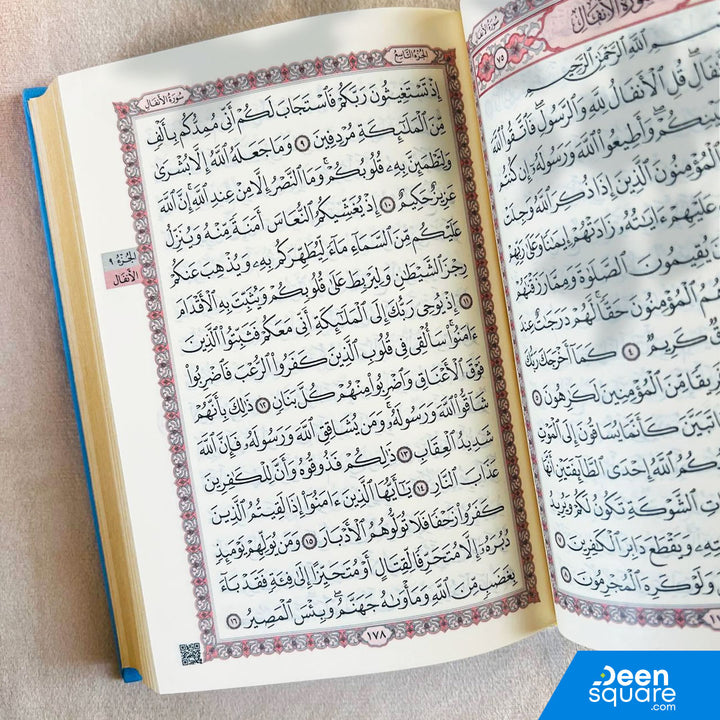 سُورَةُ الأَنفَالِ
سُورَةُ الأَنفَالِ
٧٥
ٱللَّهِ ٱلرَّحْمَٰنِ ٱلرَّحِيمِ
قُلِ ٱلْأَنفَالُ لِلَّهِ وَٱلرَّسُولِ ۖ فَٱتَّقُوا۟ ٱللَّهَ
وَأَطِيعُوا۟ ٱللَّهَ وَرَسُولَهُۥٓ إِن كُنتُم
ٱلْمُؤْمِنُونَ ٱلَّذِينَ إِذَا ذُكِرَ ٱللَّهُ وَجِلَتْ
عَلَيْهِمْ ءَايَٰتُهُۥ زَادَتْهُمْ إِيمَٰنًا وَعَلَىٰ رَبِّهِمْ
يُقِيمُونَ ٱلصَّلَوٰةَ وَمِمَّا رَزَقْنَٰهُمْ
ٱلْمُؤْمِنُونَ حَقًّا ۚ لَّهُمْ دَرَجَٰتٌ عِندَ
كَرِيمٌ ٤ كَمَآ أَخْرَجَكَ رَبُّكَ
فَرِيقًا مِّنَ ٱلْمُؤْمِنِينَ لَكَٰرِهُونَ ٥
تَبَيَّنَ كَأَنَّمَا يُسَاقُونَ إِلَى ٱلْمَوْتِ
ٱللَّهُ إِحْدَى ٱلطَّآئِفَتَيْنِ أَنَّهَا
ٱلشَّوْكَةِ تَكُونُ لَكُمْ وَيُرِيدُ
وَيَقْطَعَ دَابِرَ ٱلْكَٰفِرِينَ ٧
وَلَوْ كَرِهَ ٱلْمُجْرِمُونَ ٨
الجُزْءُ التَّاسِعُ
سُورَةُ الأَنفَالِ
إِذْ تَسْتَغِيثُونَ رَبَّكُمْ فَٱسْتَجَابَ لَكُمْ أَنِّى مُمِدُّكُم بِأَلْفٍ
مِّنَ ٱلْمَلَٰٓئِكَةِ مُرْدِفِينَ ٩ وَمَا جَعَلَهُ ٱللَّهُ إِلَّا بُشْرَىٰ
وَلِتَطْمَئِنَّ بِهِۦ قُلُوبُكُمْ ۚ وَمَا ٱلنَّصْرُ إِلَّا مِنْ عِندِ ٱللَّهِ ۚ إِنَّ ٱللَّهَ
عَزِيزٌ حَكِيمٌ ١٠ إِذْ يُغَشِّيكُمُ ٱلنُّعَاسَ أَمَنَةً مِّنْهُ وَيُنَزِّلُ
عَلَيْكُم مِّنَ ٱلسَّمَآءِ مَآءً لِّيُطَهِّرَكُم بِهِۦ وَيُذْهِبَ عَنكُمْ
رِجْزَ ٱلشَّيْطَٰنِ وَلِيَرْبِطَ عَلَىٰ قُلُوبِكُمْ وَيُثَبِّتَ بِهِ ٱلْأَقْدَامَ
١١ إِذْ يُوحِى رَبُّكَ إِلَى ٱلْمَلَٰٓئِكَةِ أَنِّى مَعَكُمْ فَثَبِّتُوا۟ ٱلَّذِينَ
ءَامَنُوا۟ ۚ سَأُلْقِى فِى قُلُوبِ ٱلَّذِينَ كَفَرُوا۟ ٱلرُّعْبَ فَٱضْرِبُوا۟
فَوْقَ ٱلْأَعْنَاقِ وَٱضْرِبُوا۟ مِنْهُمْ كُلَّ بَنَانٍ ١٢ ذَٰلِكَ بِأَنَّهُمْ
شَآقُّوا۟ ٱللَّهَ وَرَسُولَهُۥ ۚ وَمَن يُشَاقِقِ ٱللَّهَ وَرَسُولَهُۥ فَإِنَّ ٱللَّهَ
شَدِيدُ ٱلْعِقَابِ ١٣ ذَٰلِكُمْ فَذُوقُوهُ وَأَنَّ لِلْكَٰفِرِينَ
عَذَابَ ٱلنَّارِ ١٤ يَٰٓأَيُّهَا ٱلَّذِينَ ءَامَنُوٓا۟ إِذَا لَقِيتُمُ ٱلَّذِينَ
كَفَرُوا۟ زَحْفًا فَلَا تُوَلُّوهُمُ ٱلْأَدْبَارَ ١٥ وَمَن يُوَلِّهِمْ يَوْمَئِذٍ
دُبُرَهُۥٓ إِلَّا مُتَحَرِّفًا لِّقِتَالٍ أَوْ مُتَحَيِّزًا إِلَىٰ فِئَةٍ فَقَدْ بَآءَ
بِغَضَبٍ مِّنَ ٱللَّهِ وَمَأْوَىٰهُ جَهَنَّمُ ۖ وَبِئْسَ ٱلْمَصِيرُ ١٦
١٧٨
الجُزْءُ ٩
الأنفال
Deen
square
.com